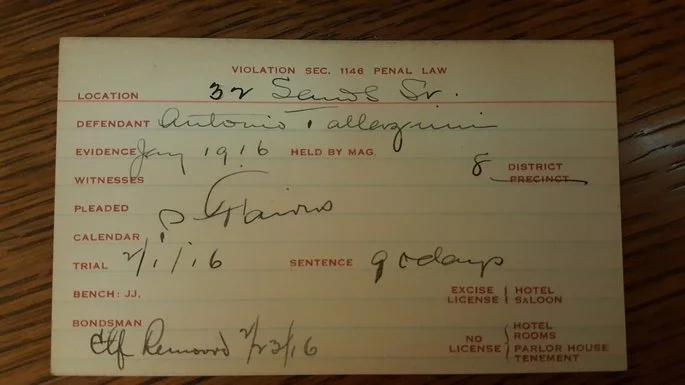 VIOLATION SEC. 1146 PENAL LAW
LOCATION 32 Sands St.
DEFENDANT Antonio
EVIDENCE Jany 1916 HELD BY MAG.
8 DISTRICT
WITNESSES PRECINCT
PLEADED
CALENDAR
TRIAL 2/1/16 SENTENCE 90 days
BENCH: JJ. EXCISE LICENSE HOTEL SALOON
BONDSMAN
Removed 2/23/16
NO LICENSE HOTEL ROOMS PARLOR HOUSE TENEMENT